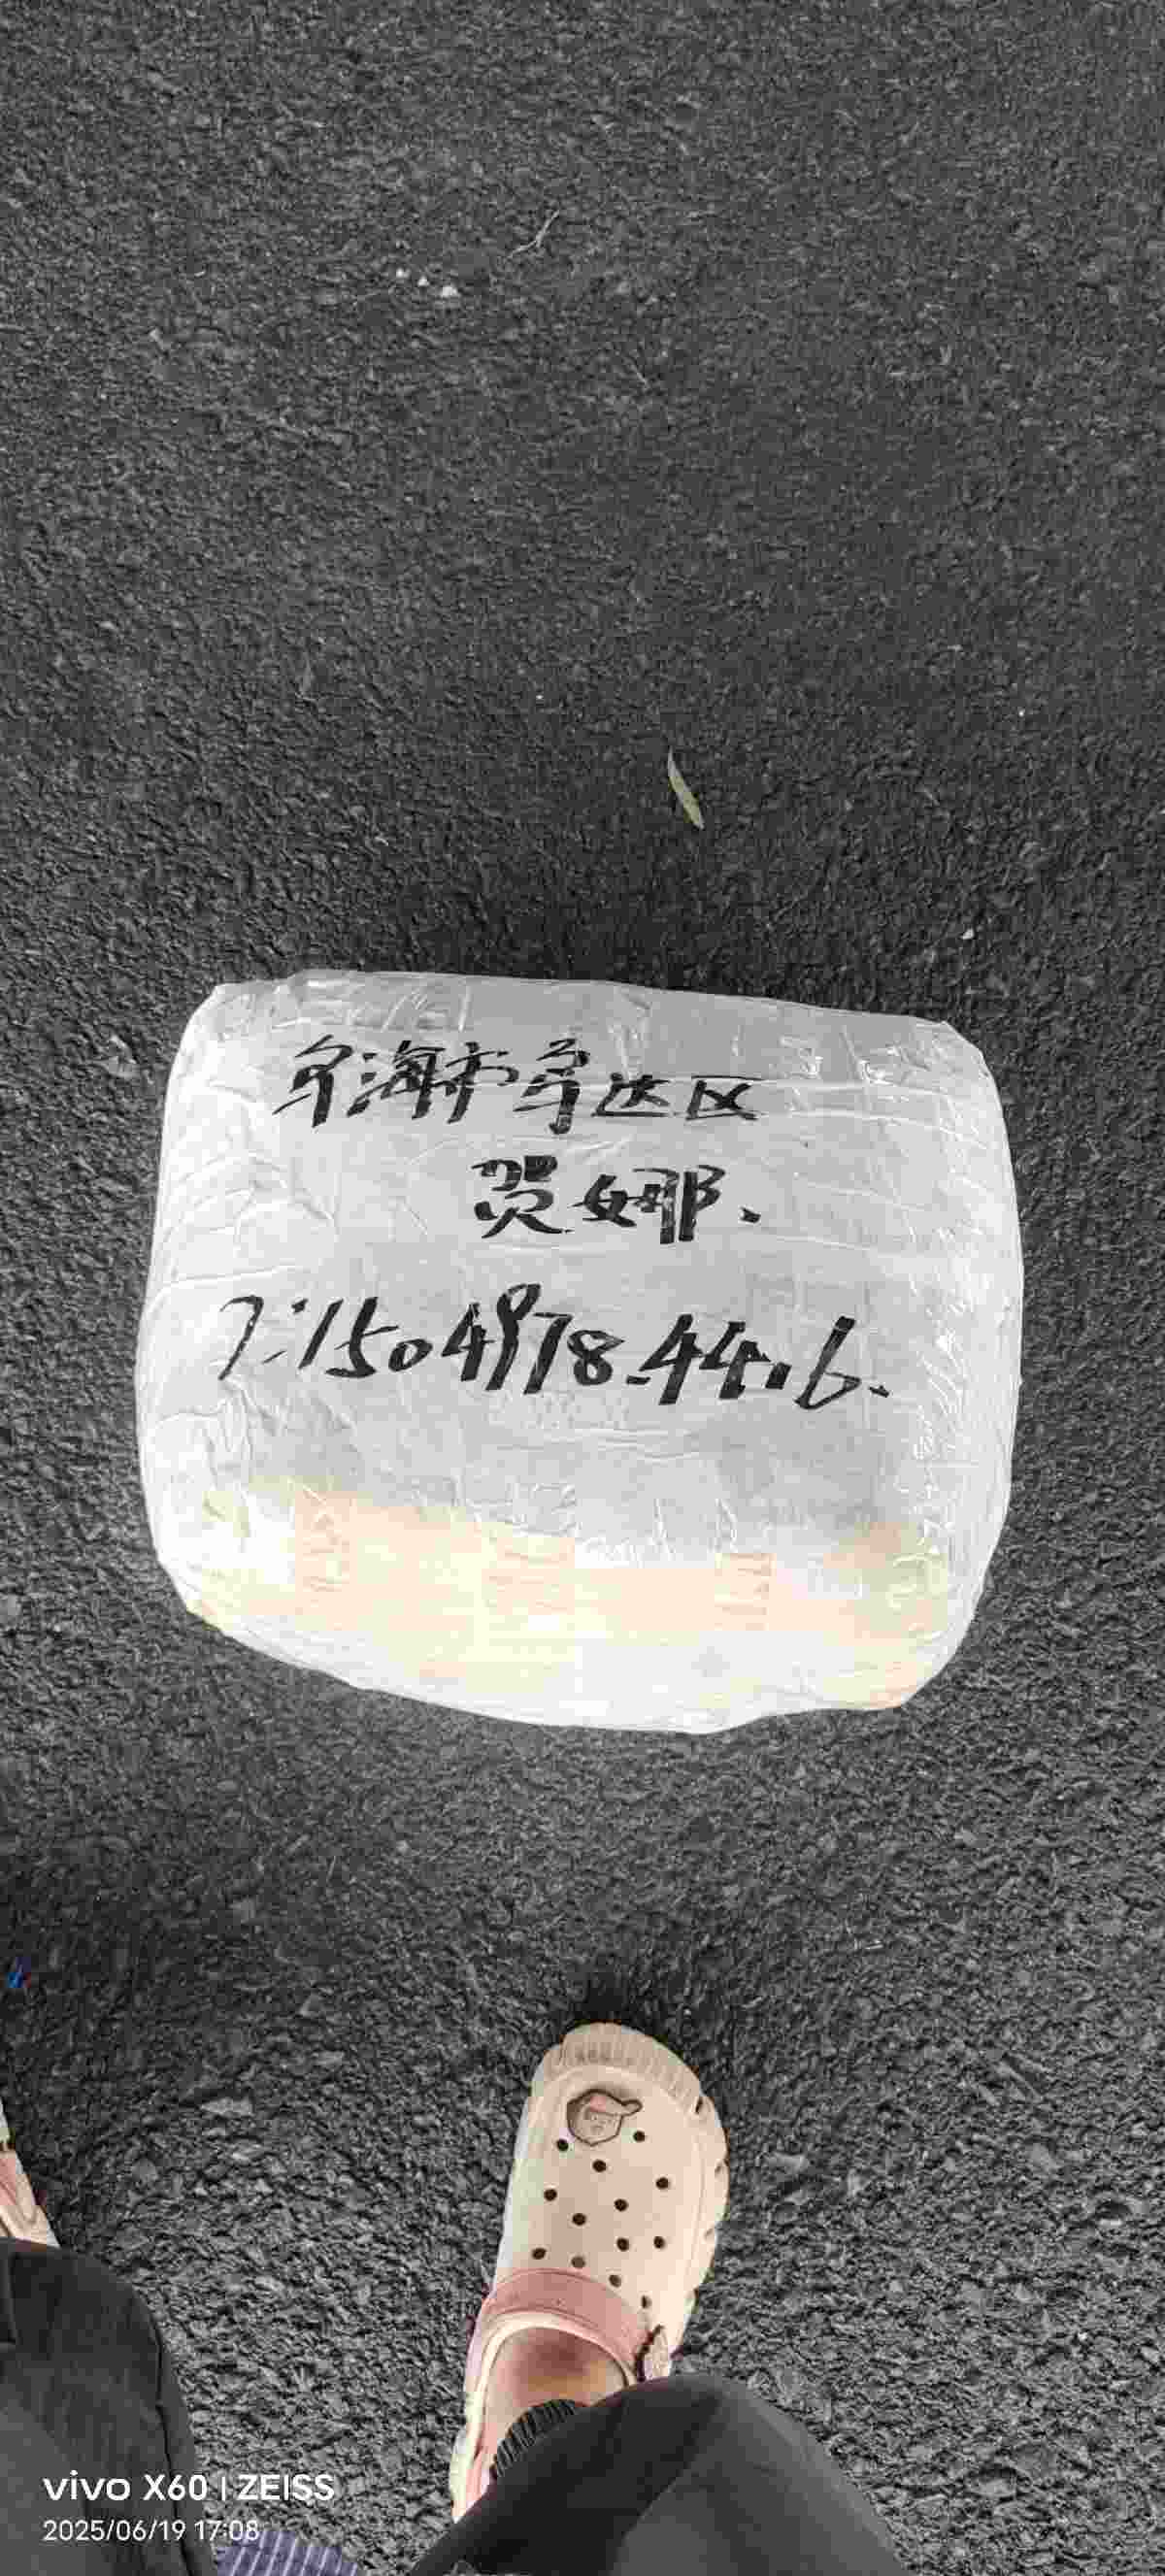 乌海市乌达区
贺娜.
T:15049784416.
vivo X60 | ZEISS
2025/06/19 17:08